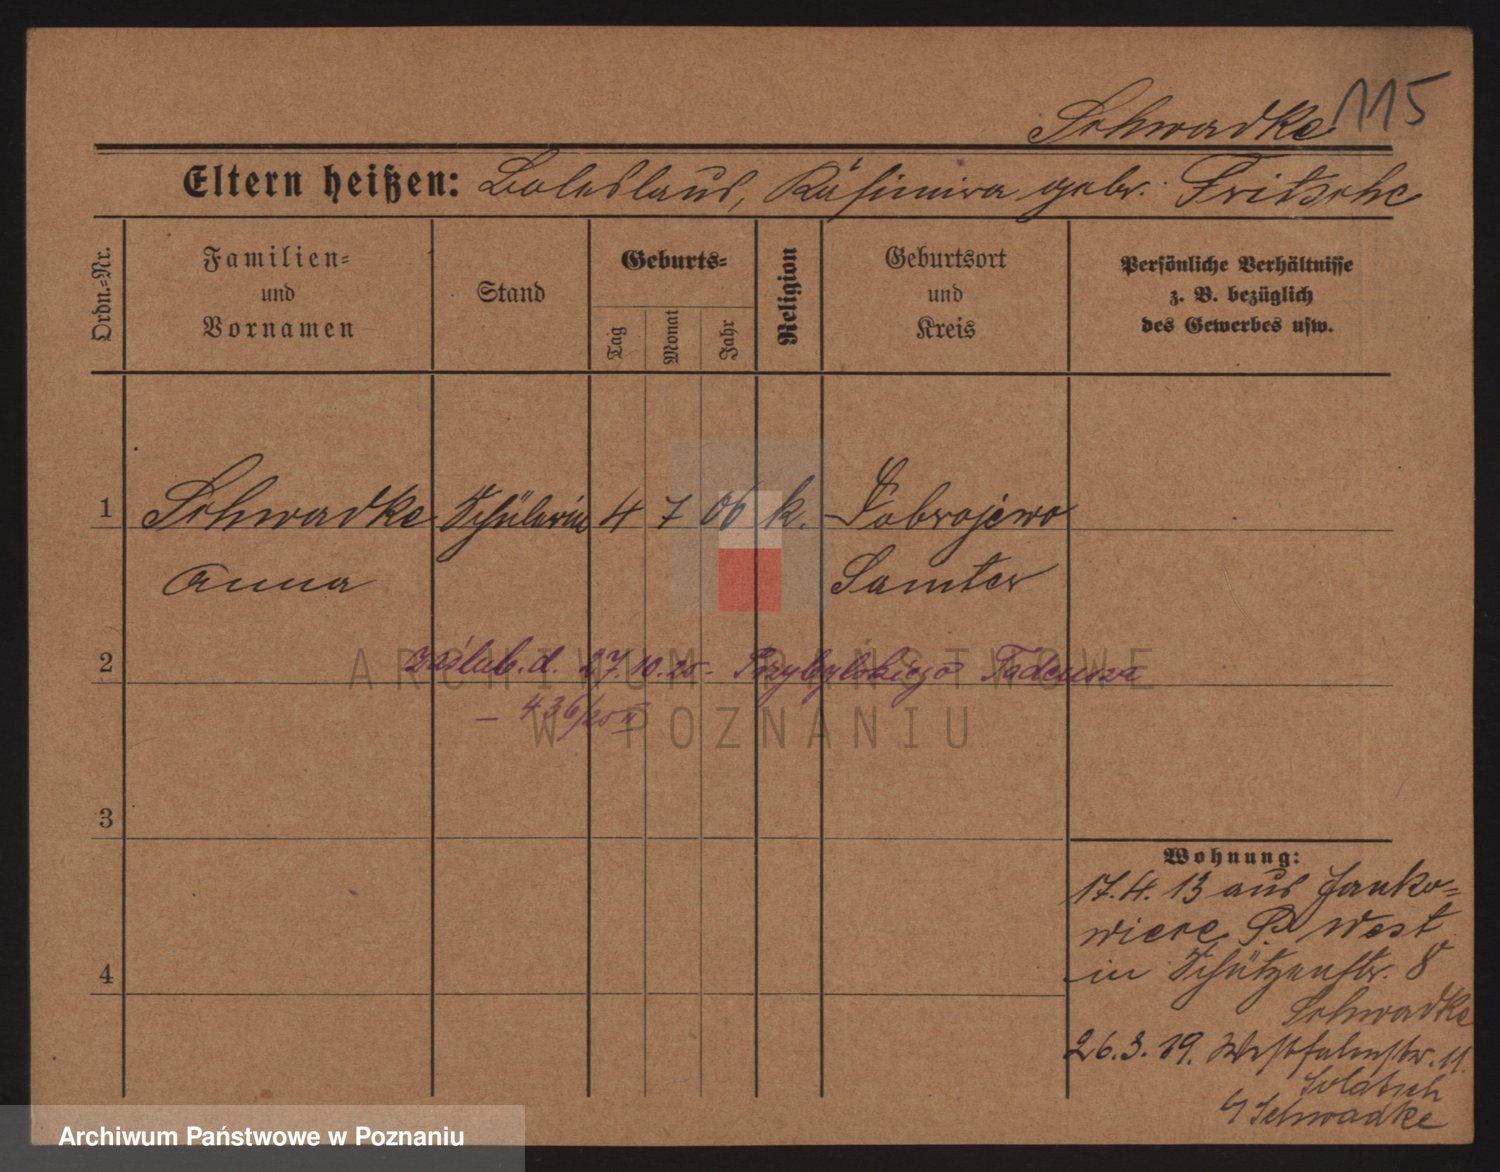 115
Schwadke
Eltern heißen: Boleslaus, Kasimira gebr. Fritsche
Ordn.-Nr.
Familien-
und
Vornamen
Stand
Geburts-
Tag
Monat
Jahr
Religion
Geburtsort
und
Kreis
Persönliche Verhältnisse
z. B. bezüglich
des Gewerbes usw.
1 Schwadke Schülerin 4 7 06 k. Dobrojewo
Anna Samter
2 zaślub. d. 27.10.25 - Przybylskiego Tadeusza
- 436/25 II
3
4
Wohnung:
17.4.13 aus Janko-
wiece P. West
in Schützenstr. 8
Schwadke
26.3.19. Westfalenstr. 11.
Schwadke
ARCHIWUM PAŃSTWOWE
W POZNANIU
Archiwum Państwowe w Poznaniu